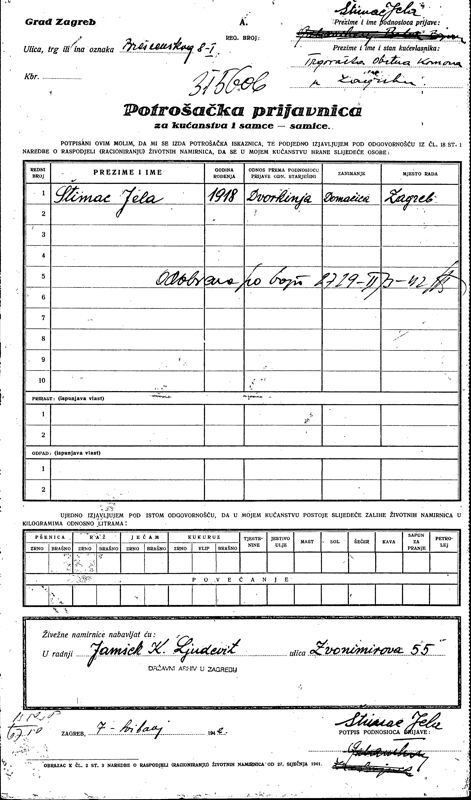 Grad Zagreb
A.
REG. BROJ:
Štimac Jela
Prezime i ime podnosioca prijave:
Ulica, trg ili ina oznaka
8-I
Prezime i ime i stan kućevlasnika:
Kbr.
31560b
Potrošačka prijavnica
za kućanstva i samce – samice.
POTPISANI OVIM MOLIM, DA MI SE IZDA POTROŠAČKA ISKAZNICA, TE PODJEDNO IZJAVLJUJEM POD ODGOVORNOŠĆU IZ ČL. 18 ST. 1
NAREDBE O RASPODJELI (RACIONIRANJU) ŽIVOTNIH NAMIRNICA, DA SE U MOJEM KUĆANSTVU HRANE SLIJEDEĆE OSOBE:
REDNI BROJ PREZIME I IME GODINA ROĐENJA ODNOS PREMA PODNOSIOCU PRIJAVE ODN. STARJEŠINI ZANIMANJE MJESTO RADA
1 Štimac Jela 1918 Dvorkinja Domaćica Zagreb
2
3
4
5 po broju 2729-II/3-42
6
7
8
9
10
PRIRAST: (ispunjava vlast)
1
2
OTPAD: (ispunjava vlast)
1
2
UJEDNO IZJAVLJUJEM POD ISTOM ODGOVORNOŠĆU, DA U MOJEM KUĆANSTVU POSTOJE SLIJEDEĆE ZALIHE ŽIVOTNIH NAMIRNICA U
KILOGRAMIMA ODNOSNO LITRAMA:
PŠENICA RAŽ JEČAM KUKURUZ TJESTENINE JESTIVO ULJE MAST SOL ŠEĆER KAVA SAPUN ZA PRANJE PETROLEJ
ZRNO BRAŠNO ZRNO BRAŠNO ZRNO BRAŠNO ZRNO KLIP BRAŠNO
POVEĆANJE
Živežne namirnice nabavljat ću:
U radnji Jamick K. Ljudevit ulica Zvonimirova 55
DRŽAVNI ARHIV U ZAGREBU
Štimac Jela
ZAGREB, 7 - svibanj 194
POTPIS PODNOSIOCA PRIJAVE:
OBRAZAC K ČL. 2 ST. 3 NAREDBE O RASPODJELI (RACIONIRANJU) ŽIVOTNIH NAMIRNICA OD 27. SIJEČNJA 1941.